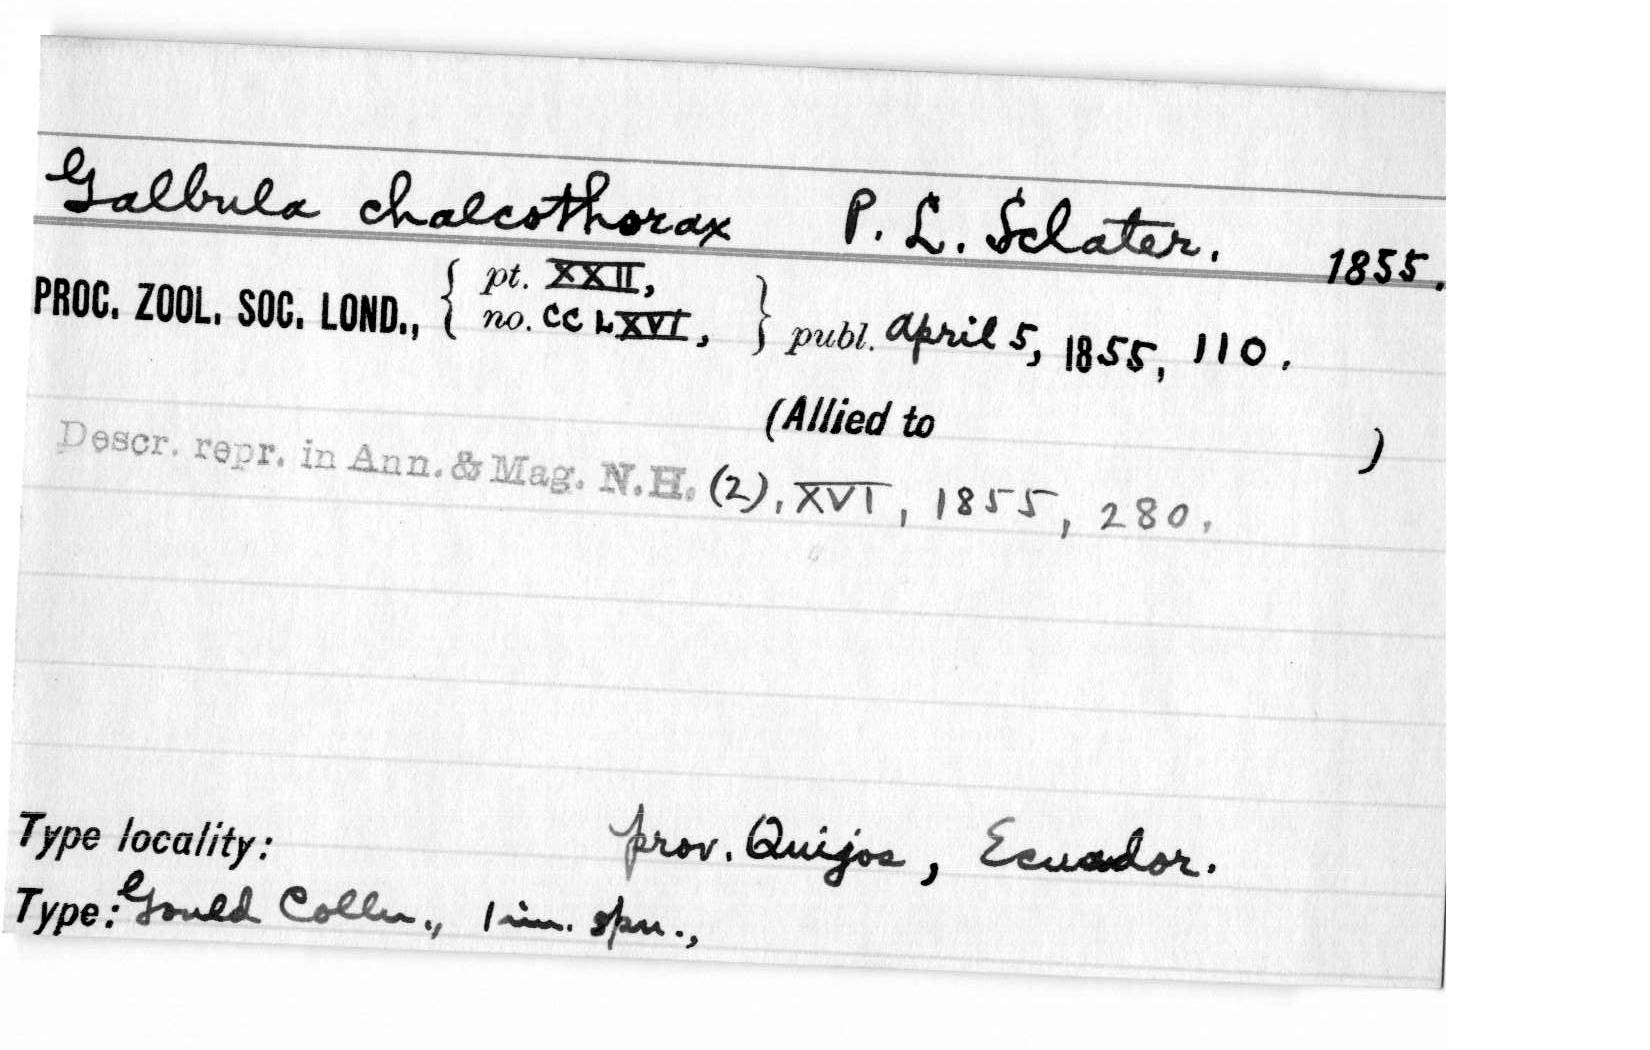 Galbula chalcothorax P. L. Sclater. 1855.
PROC. ZOOL. SOC. LOND., { pt. XXII, no. CCLXVI, } publ. April 5, 1855, 110.
(Allied to )
Descr. repr. in Ann. & Mag. N.H. (2), XVI, 1855, 280.
Type locality: prov. Quijos, Ecuador.
Type: Gould Colln., 1 im. spn.,